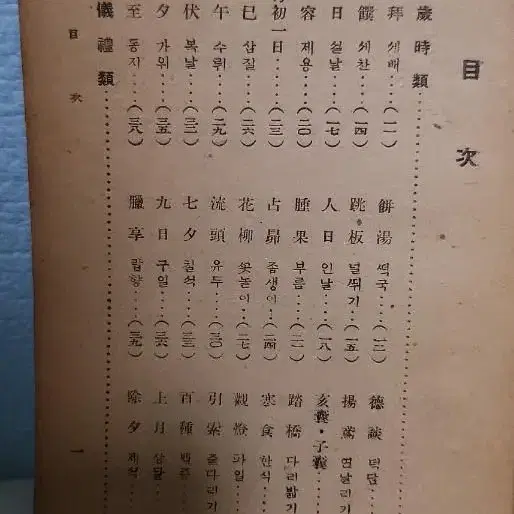 目次
歲時類
拜 세배 (一一) 餠湯 떡국 (一三) 德談 덕담
饌 세찬 (一四) 跳板 널뛰기 (一五) 揚鳶 연날리기
日 설날 (一七) 人日 인날 (一八) 亥囊・子囊
容 제용 (二〇) 腫果 부름 (二一) 踏橋 다리밟기
初一日 (二三) 占昴 좀생이 (二四) 寒食 한식
巳 삼질 (二六) 花柳 꽃놀이 (二七) 觀燈 파일
午 수뤼 (二九) 流頭 유두 (三〇) 引索 줄다리기
伏 복날 (三二) 七夕 칠석 (三三) 百種
夕 가위 (三五) 九日 구일 (三六) 上月 상달
至 동지 (三八) 臘享 랍향 (三九) 除夕 제석
儀禮類
目次 一